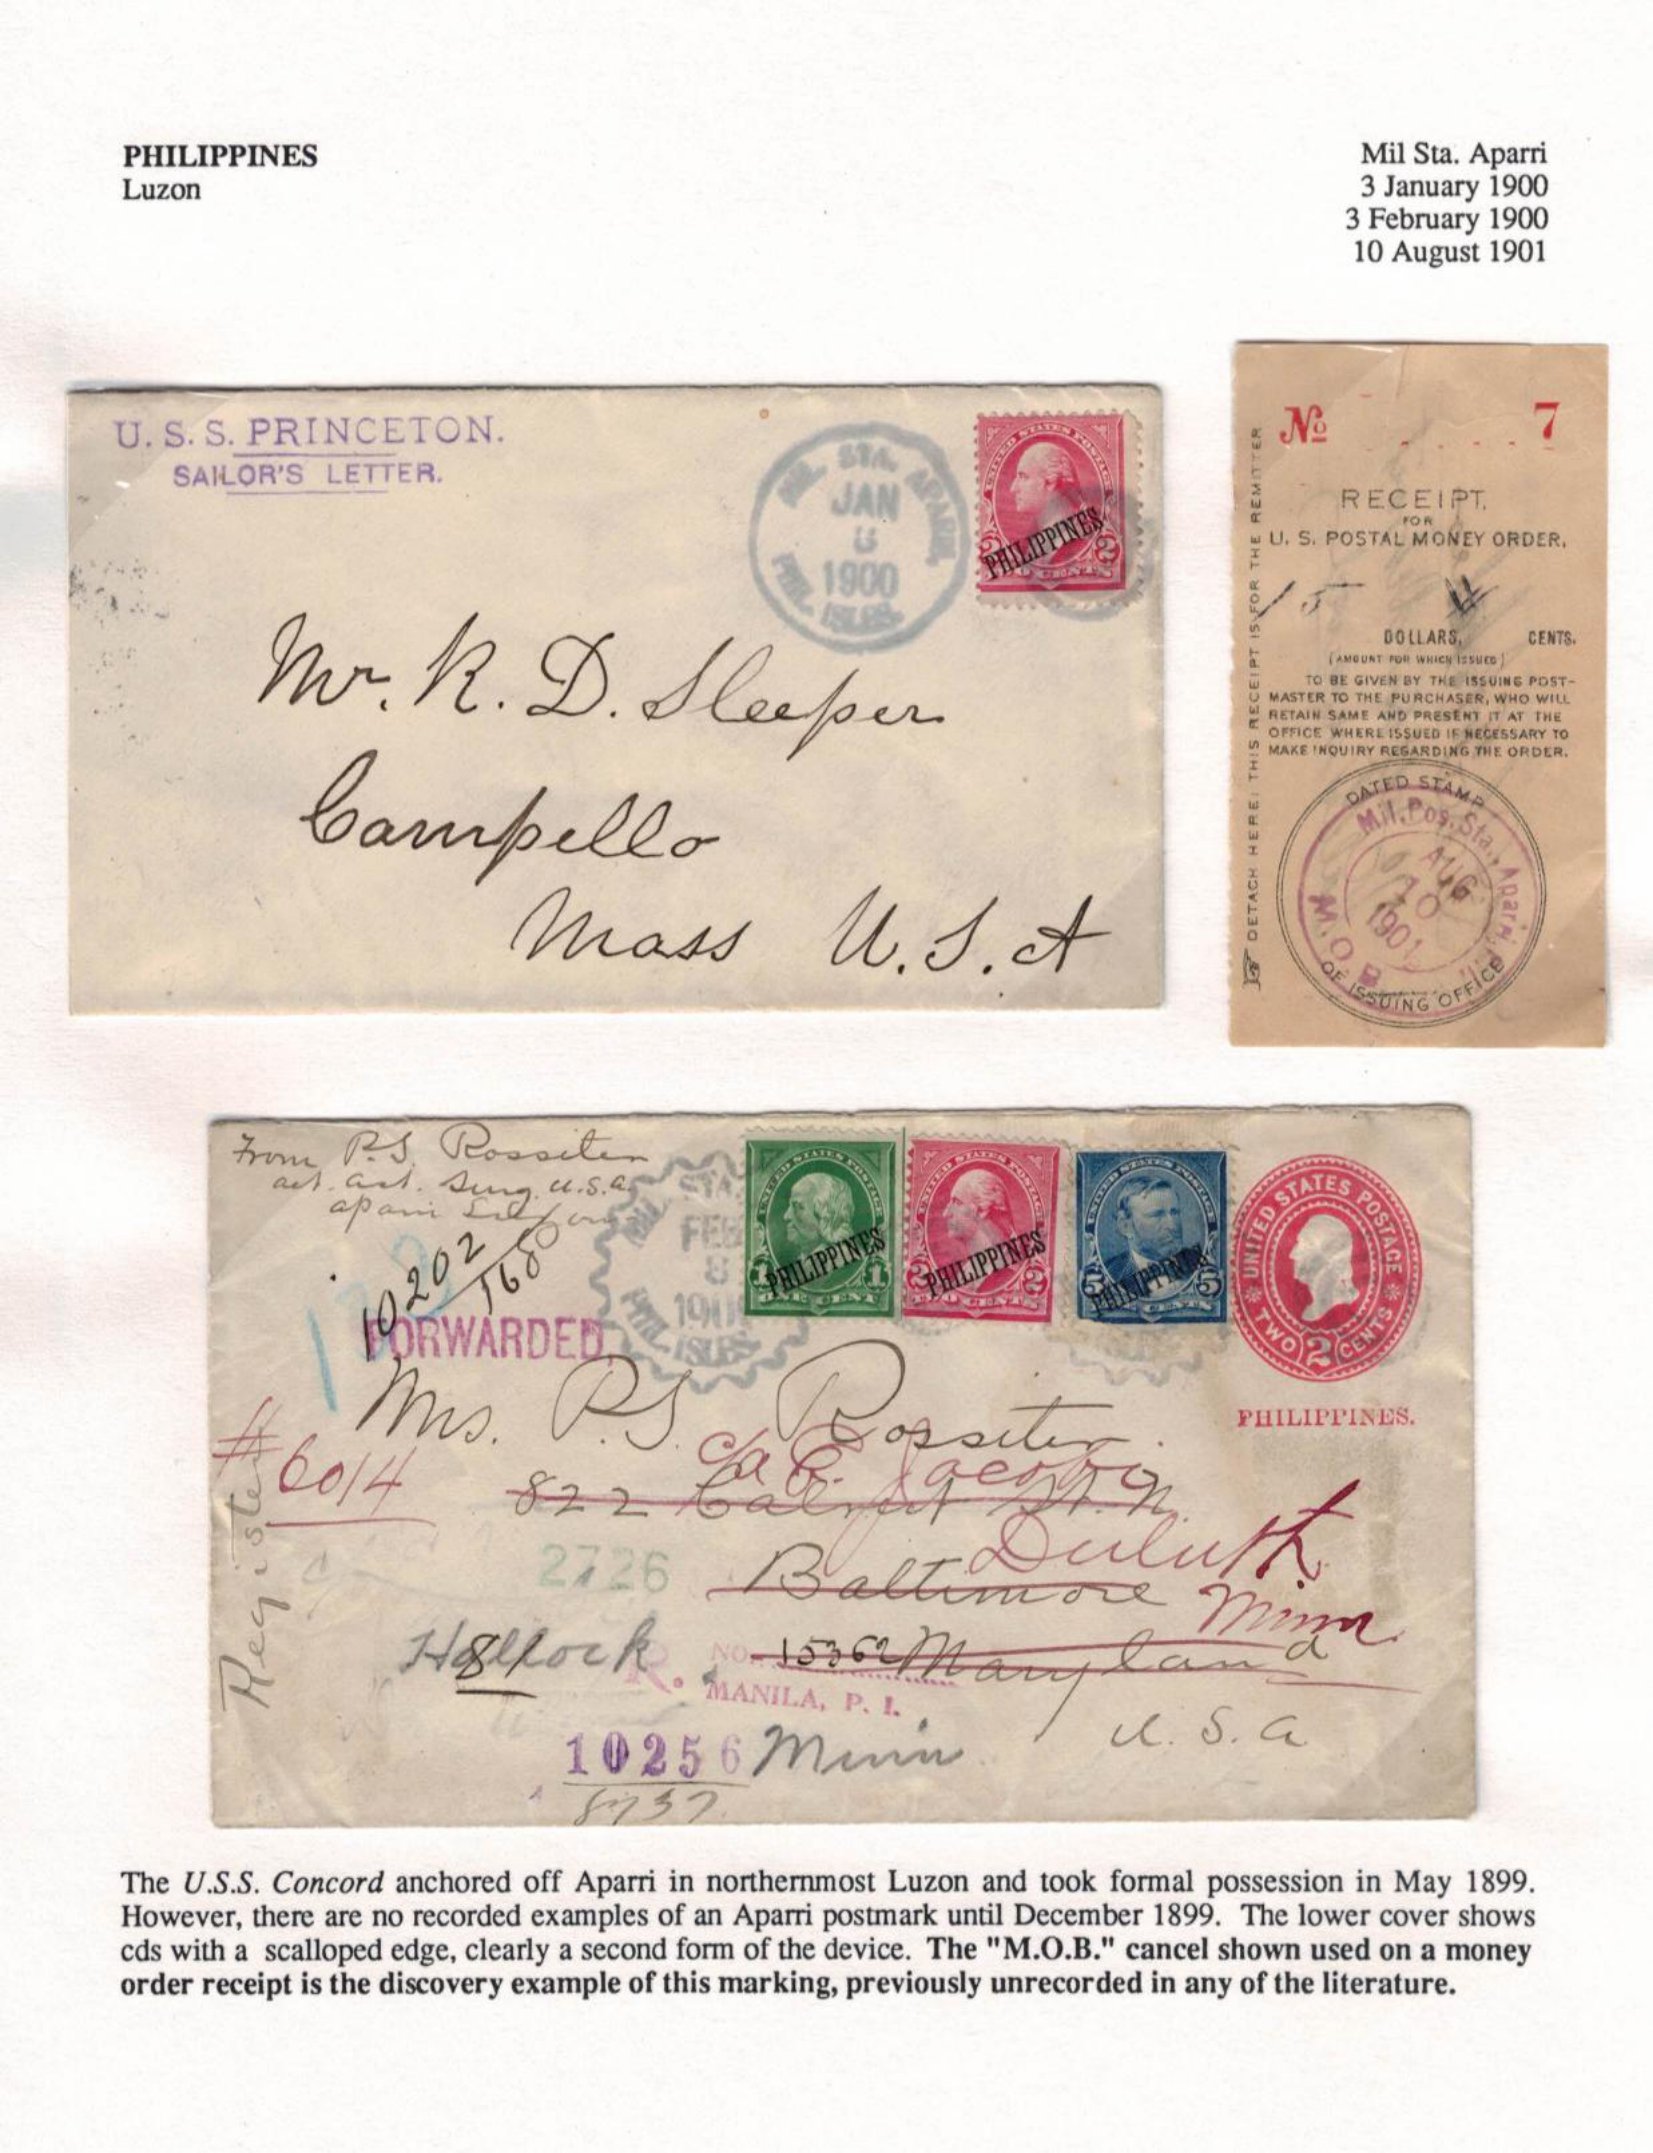 PHILIPPINES
Luzon
Mil Sta. Aparri
3 January 1900
3 February 1900
10 August 1901
U. S. S. PRINCETON.
SAILOR'S LETTER.
MIL. STA. APARRI,
JAN
1900
PHIL. ISLES.
UNITED STATES POSTAGE
PHILIPPINES
2 2
Mr. R. D. Sleeper
Campello
Mass U.S.A
No 7
RECEIPT,
FOR
U. S. POSTAL MONEY ORDER,
15
DOLLARS, CENTS.
(AMOUNT FOR WHICH ISSUED)
TO BE GIVEN BY THE ISSUING POST-
MASTER TO THE PURCHASER, WHO WILL
RETAIN SAME AND PRESENT IT AT THE
OFFICE WHERE ISSUED IF NECESSARY TO
MAKE INQUIRY REGARDING THE ORDER.
DETACH HERE: THIS RECEIPT IS FOR THE REMITTER
DATED STAMP
Mil. Pos. Sta., Aparri, P.I.
AUG
10
1901
M.O.B.
OF ISSUING OFFICE
From P.S. Rossiter
act. asst. Surg. U.S.A.
Aparri Luzon
10202
168
FORWARDED
STA.
FEB
PHIL. ISLES
UNITED STATES POSTAGE
PHILIPPINES
1 1
ONE CENT
UNITED STATES POSTAGE
PHILIPPINES
2 2
TWO CENTS
UNITED STATES POSTAGE
PHILIPPINES
5 5
UNITED STATES POSTAGE
TWO 2 CENTS
PHILIPPINES.
Mrs. P.S. Rossiter.
c/o C. Jacoby
822 Calvert St. N.
Duluth
Baltimore
Minn.
Maryland
U. S. A
# 6014
Registered
2726
Hallock
81
R. NO. 15362
MANILA, P. I.
10256 Minn
8737
The U.S.S. Concord anchored off Aparri in northernmost Luzon and took formal possession in May 1899.
However, there are no recorded examples of an Aparri postmark until December 1899. The lower cover shows
cds with a scalloped edge, clearly a second form of the device. The "M.O.B." cancel shown used on a money
order receipt is the discovery example of this marking, previously unrecorded in any of the literature.